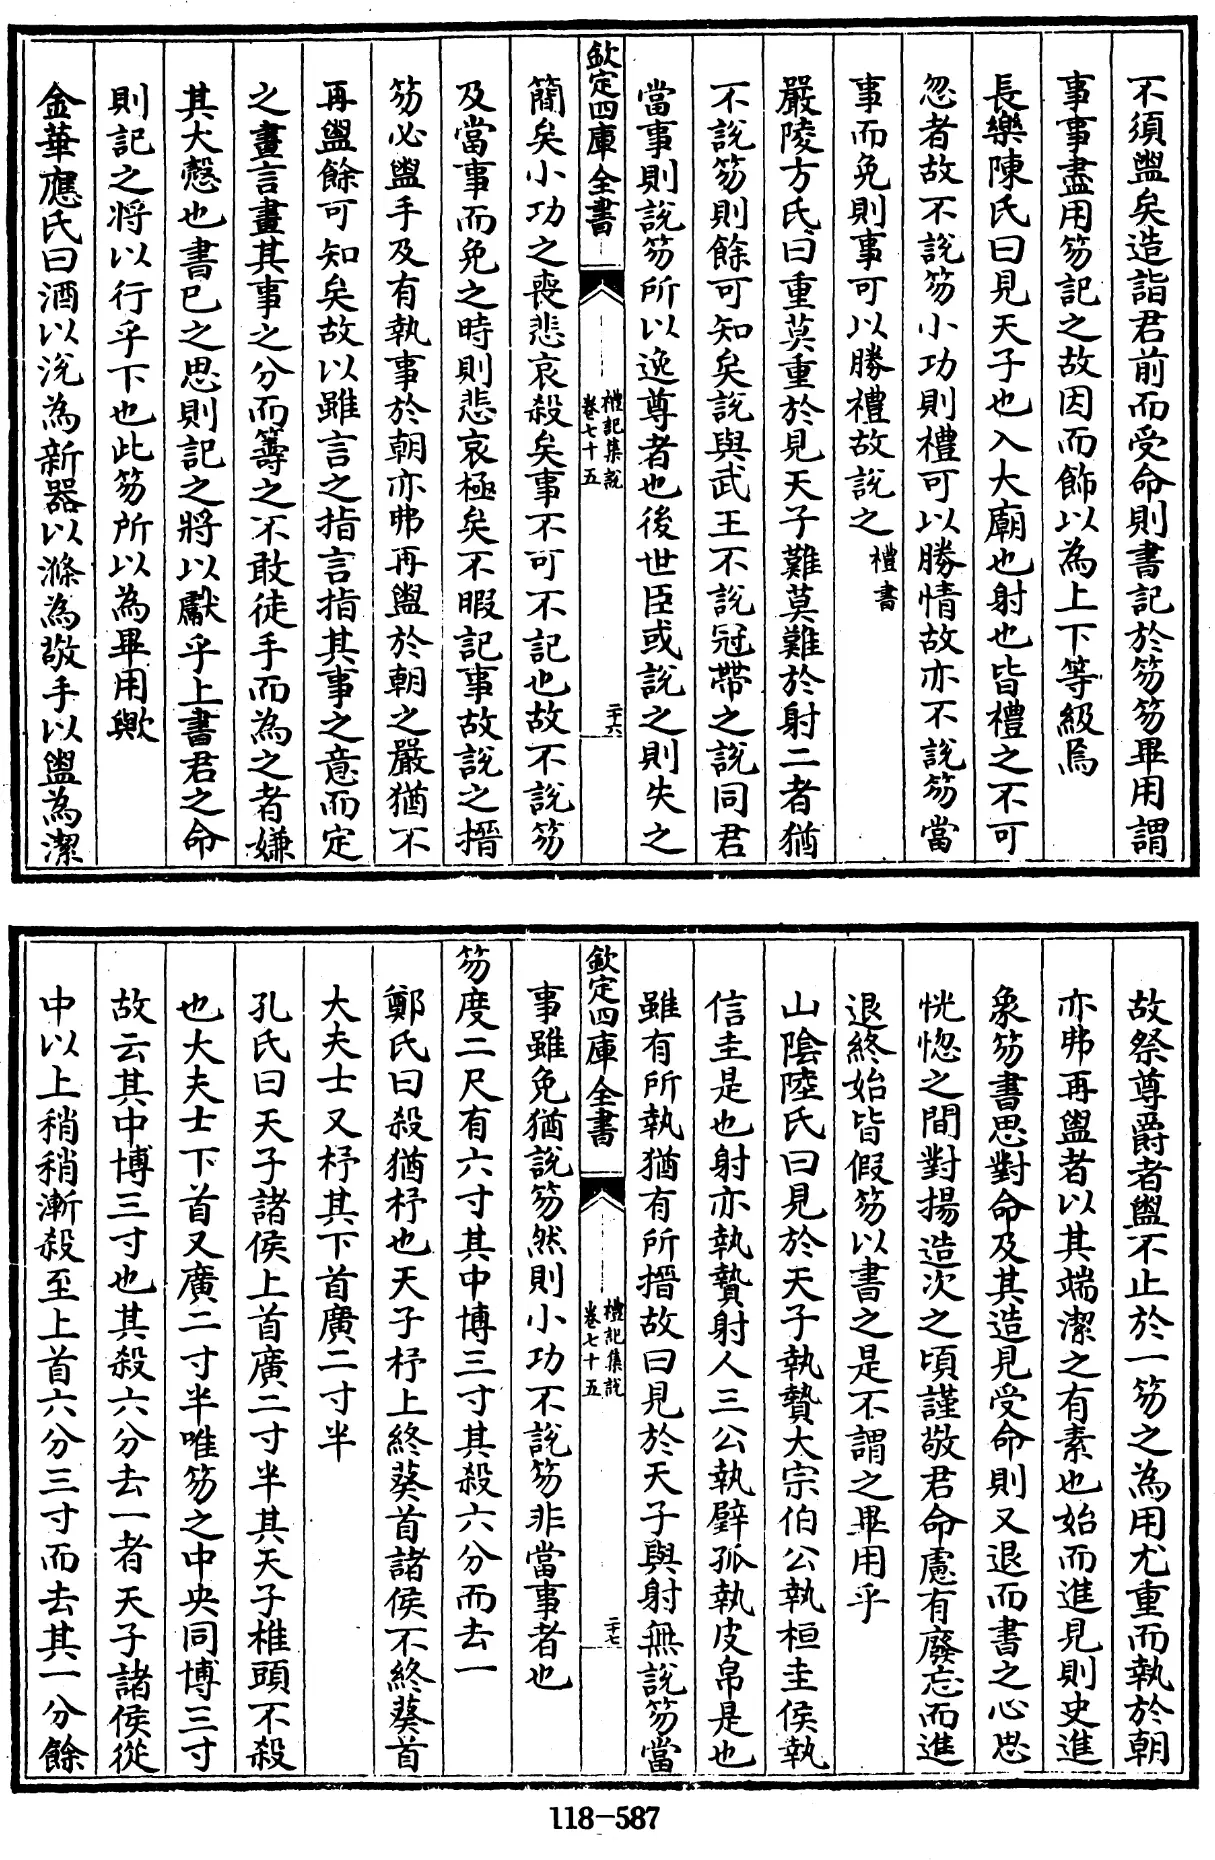 不須盥矣造詣君前而受命則書記於笏笏畢用謂
事事盡用笏記之故因而飾以為上下等級焉
長樂陳氏曰見天子也入大廟也射也皆禮之不可
忽者故不說笏小功則禮可以勝情故亦不說笏當
事而免則事可以勝禮故說之禮書
嚴陵方氏曰重莫重於見天子難莫難於射二者猶
不說笏則餘可知矣說與武王不說冠帶之說同君
當事則說笏所以逸尊者也後世臣或說之則失之
欽定四庫全書
禮記集說
卷七十五
二十六
簡矣小功之喪悲哀殺矣事不可不記也故不說笏
及當事而免之時則悲哀極矣不暇記事故說之搢
笏必盥手及有執事於朝亦弗再盥於朝之嚴猶不
再盥餘可知矣故以雖言之指言指其事之意而定
之畫言畫其事之分而籌之不敢徒手而為之者嫌
其大慤也書已之思則記之將以獻乎上書君之命
則記之將以行乎下也此笏所以為畢用歟
金華應氏曰酒以涗為新器以滌為敬手以盥為潔
故祭尊爵者盥不止於一笏之為用尤重而執於朝
亦弗再盥者以其端潔之有素也始而進見則史進
象笏書思對命及其造見受命則又退而書之心思
恍惚之間對揚造次之頃謹敬君命慮有廢忘而進
退終始皆假笏以書之是不謂之畢用乎
山陰陸氏曰見於天子執贄大宗伯公執桓圭侯執
信圭是也射亦執贄射人三公執璧孤執皮帛是也
雖有所執猶有所搢故曰見於天子與射無說笏當
欽定四庫全書
禮記集說
卷七十五
二十七
事雖免猶說笏然則小功不說笏非當事者也
笏度二尺有六寸其中博三寸其殺六分而去一
鄭氏曰殺猶杼也天子杼上終葵首諸侯不終葵首
大夫士又杼其下首廣二寸半
孔氏曰天子諸侯上首廣二寸半其天子椎頭不殺
也大夫士下首又廣二寸半唯笏之中央同博三寸
故云其中博三寸也其殺六分去一者天子諸侯從
中以上稍稍漸殺至上首六分三寸而去其一分餘
118-587